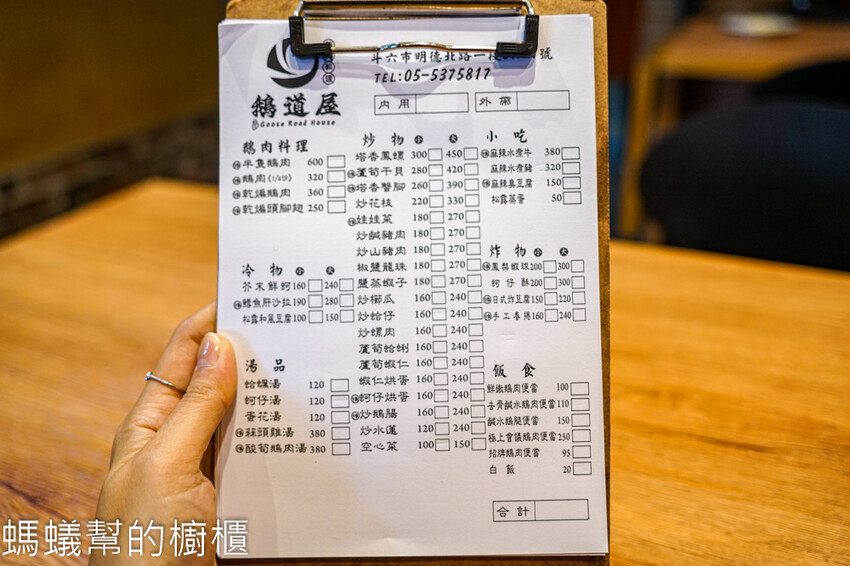 鵝道屋
Goose Road House
斗六市明德北路一段 號
TEL:05-5375817
內用
外帶
鵝肉料理
半隻鵝肉 600
鵝肉(1/4份) 320
乾煸鵝肉 360
乾煸頭腳翅 250
冷物 小 大
芥末鮮蚵 160 240
鱈魚肝沙拉 190 280
松露和風豆腐 100 150
湯品
蛤蠣湯 120
蚵仔湯 120
蛋花湯 120
蒜頭雞湯 380
酸筍鵝肉湯 380
炒物 小 大
塔香鳳螺 300 450
蘆筍干貝 280 420
塔香臀腳 260 390
炒花枝 220 330
娃娃菜 180 270
炒鹹豬肉 180 270
炒山豬肉 180 270
椒鹽龍珠 180 270
鹽蒸蝦子 180 270
炒櫛瓜 160 240
炒蛤仔 160 240
炒螺肉 160 240
蘆筍蛤蜊 160 240
蘆筍蝦仁 160 240
蝦仁烘蛋 160 240
蚵仔烘蛋 160 240
炒鵝腸 160 240
炒水蓮 120 240
空心菜 100 150
小吃
麻辣水煮牛 380
麻辣水煮豬 320
麻辣臭豆腐 150
松露蒸蛋 50
炸物 小 大
鳳梨蝦球 200 300
蚵仔酥 200 300
日式炸豆腐 150 220
手工春捲 160 240
飯食
鮮嫩鵝肉便當 100
去骨鹹水鵝肉便當 110
鹹水鵝腿便當 150
極上會議鵝肉便當 250
招牌鵝肉便當 95
白飯 20
合計
螞蟻幫的櫥櫃